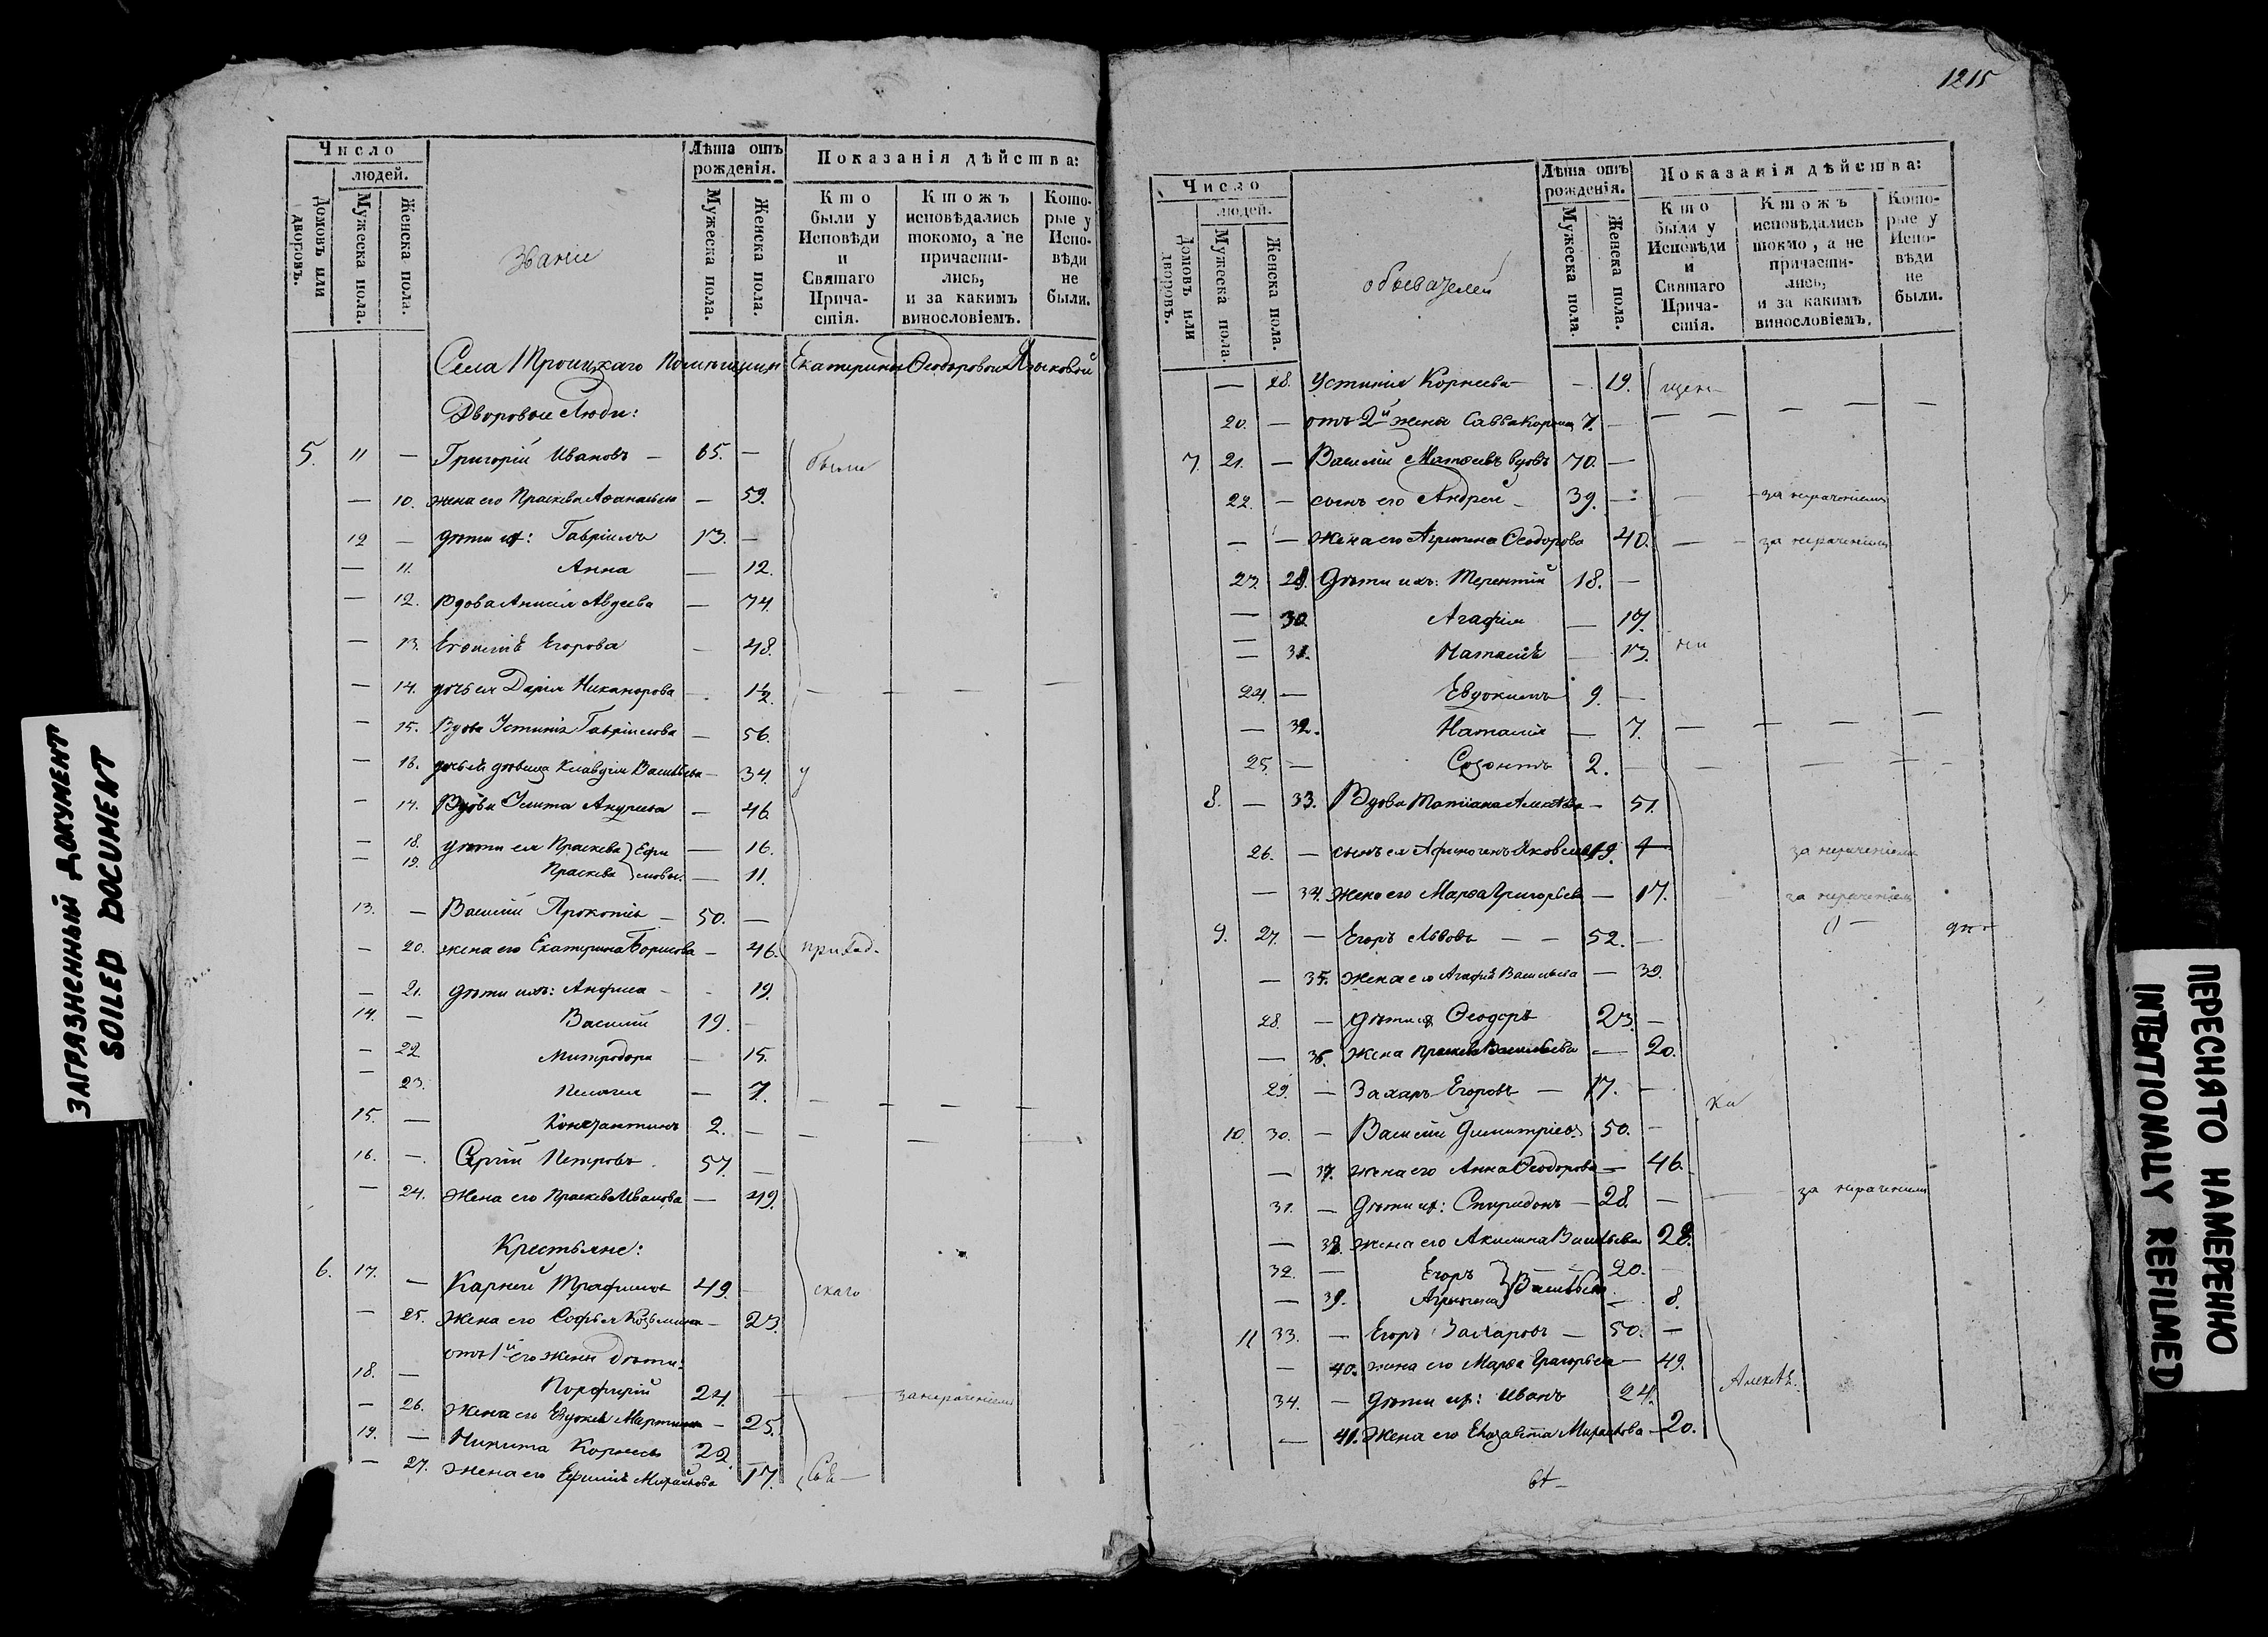 1215
Число
людей.
Домовъ или дворовъ.
Мужеска пола.
Женска пола.
Званіе
Лѣта отъ рожденія.
Мужеска пола.
Женска пола.
Показанія дѣйства:
Кто были у Исповѣди и Святаго Причастія.
Ктожъ исповѣдались токомо, а не причастились, и за какимъ винословіемъ.
Которые у Исповѣди не были.
Села Троицкаго Помѣщицы Екатерины Ѳеодоровой Языковой
Дворовые Люди:
5. 11 — Григорій Ивановъ — 65. — были
— 10. жена его Праскева Аѳанасьева — 59.
12 — дѣти их: Гавріилъ 13. —
— 11. Анна — 12.
— 12. вдова Анисія Авдеева — 74.
— 13. Егорова — 48.
— 14. дочь ея Дарія Никанорова — 1½ — — — —
— 15. Вдова Устинія Гавріилова — 56.
— 16. дочь ея дѣвица Клавдія Васильева — 34. у
— 17. Вдова Улита Андреева — 46.
— 18. дѣти ея Праскева } Ефи — 16.
— 19. Праскева } мовы. — 11.
13. — Василій Прокопіев — 50. —
— 20. жена его Екатерина Борисова — 46. приход-
— 21. дѣти ихъ: Анфиса — - 19.
14. — Василій 19. —
— 22 Митродора — 15.
— 23. Пелагия — 7. — — — —
15. — Константинъ 2. — — — —
16. — Сергій Петровъ 57. —
— 24. жена его Праскева Иванова — 49.
Крестьяне:
6. 17. — Карней Трафимов 49. — скаго
— 25. жена его Софья Козьмина — 23.
отъ 1й его жены дѣти:
18. — Порфирій 24. — — за нераченіемъ
— 26. жена его Евдокия Мартинова — 25.
19. — Никита Корнеевъ 22.
— 27. жена его Ефимія Михайлова 17.
Число
людей.
Домовъ или дворовъ.
Мужеска пола.
Женска пола.
обывателей
Лѣта отъ рожденія.
Мужеска пола.
Женска пола.
Показанія дѣйства:
Кто были у Исповѣди и Святаго Причастія.
Ктожъ исповѣдались токмо, а не причастились, и за какимъ винословіемъ.
Которые у Исповѣди не были.
— 28. Устинія Корнеева — 19. щен-
20. — отъ 2й жены Савва Корнеев 7. — — — — —
7. 21. — Василій Матѳеевъ вдовъ 70. —
22. — сынъ его Андрей — 39. — — за нераченіемъ
— — жена его Агрипина Ѳеодорова 40. — — за нераченіемъ
23. 29. дѣти ихъ: Терентій 18. —
— 30. Агафія — 17.
— 31. Наталія — 13. ни
24. — Евдокимъ 9. —
— 32. Наталія — 7. — — — —
25. — Созонтъ 2. — — — — —
8. — 33. Вдова Татіана Алексѣева — 51.
26. — сынъ ея Афиногенъ Яковлевъ 19. за нераченіемъ
— 34. жена его Марѳа Григорьева — 17. за нераченіемъ
9. 27. — Егоръ Львовъ — — 52. —
— 35. жена его Агафія Васильева — 39.
28. — дѣти их Ѳеодоръ 23. —
— 36. жена Праскева Васильева — 20.
29. — Захаръ Егоровъ — 17. — ки
10. 30. — Василій Димитріев 50. —
— 37. жена его Анна Ѳеодорова — 46.
31. — дѣти их: Спиридонъ — 28. — за нераченіемъ
— 38. жена его Акилина Васильева 28.
32. — Егоръ } Васильевы 20. —
— 39. Агрипина } — 8.
11 33. — Егоръ Захаровъ — 50. —
— 40. жена его Марѳа Григорьева — 49.
34. — дѣти их: Иванъ 24. Алексѣ.
— 41. жена его Елизавета Михайлова — 20.
ЗАГРЯЗНЕННЫЙ ДОКУМЕНТ
SOILED DOCUMENT
ПЕРЕСНЯТО НАМЕРЕННО
INTENTIONALLY REFILMED